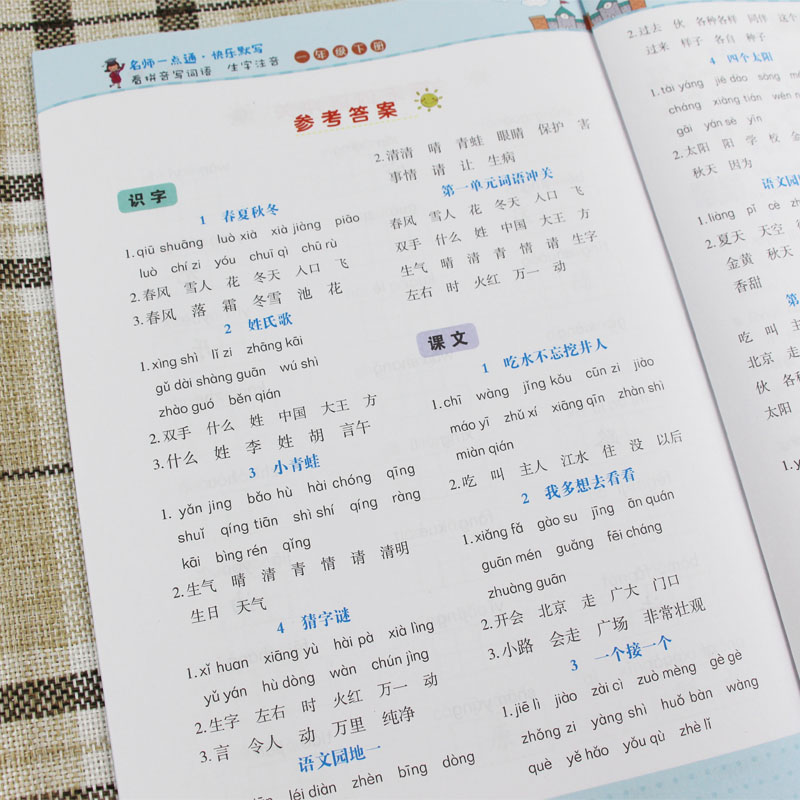 名师一点通·快乐默写
看拼音写词语 生字注音
一年级下册
参考答案
识字
1 春夏秋冬
1.qiū shuāng luò xià xià jiàng piāo
luò chí zi yóu chuī qì chū rù
2.春风 雪人 花 冬天 入口 飞
3.春风 落 霜 冬雪 池 花
2 姓氏歌
1.xìng shì lǐ zi zhāng kāi
gǔ dài shàng guān wú shì
zhào guó běn qián
2.双手 什么 姓 中国 大王 方
3.什么 姓 李 姓 胡 言午
3 小青蛙
1. yǎn jing bǎo hù hài chóng qīng
shuǐ qíng tiān shì shí qíng ràng
kāi bìng rén qǐng
2.生气 晴 清 青 情 请 清明
生日 天气
4 猜字谜
1.xǐ huan xiāng yù hài pà xià lìng
yǔ yán hù dòng wàn chún jìng
2.生字 左右 时 火红 万一 动
3.言 令人 动 万里 纯净
语文园地一
léi diàn zhèn bīng dòng
2.清清 晴 青蛙 眼睛 保护 害
事情 请 让 生病
第一单元词语冲关
春风 雪人 花 冬天 入口 飞
双手 什么 姓 中国 大王 方
生气 晴 清 青 情 请 生字
左右 时 火红 万一 动
课文
1 吃水不忘挖井人
1.chī wàng jǐng kǒu cūn zi jiào
máo yī zhǔ xí xiāng qīn zhàn shì
miàn qián
2.吃 叫 主人 江水 住 没 以后
2 我多想去看看
1.xiǎng fǎ gào su jīng ān quán
guān mén guǎng fēi cháng
zhuàng guān
2.开会 北京 走 广大 门口
3.小路 会走 广场 非常壮观
3 一个接一个
1.jiē lì jiào zài cì zuò mèng gè gè
zhǒng zi yàng shì huǒ bàn wàng
què yě hǎo yǒu qù zhè lǐ
2.过去 伙 各种各样 同伴 这个
过来 样子 各自 种子
4 四个太阳
1.tài yáng jié dào sòng
cháng xiāng tián wēn
gāi yán sè yīn
2.太阳 阳 学 校 金
秋天 因为
语文园
1.liàng pǐ cè
2.夏天 天空
金黄 秋天
香甜
第
吃 叫
北京 走
伙 各种
太阳